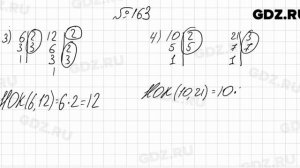 №163
GDZ.RU
3) 6 2 12 2
3 3 6 2
1 3 3
1
4) 10 2 21 3
5 5 7 7
1 1
НОК(6,12)=6·2=12
НОК(10,21)=10·
GDZ.RU